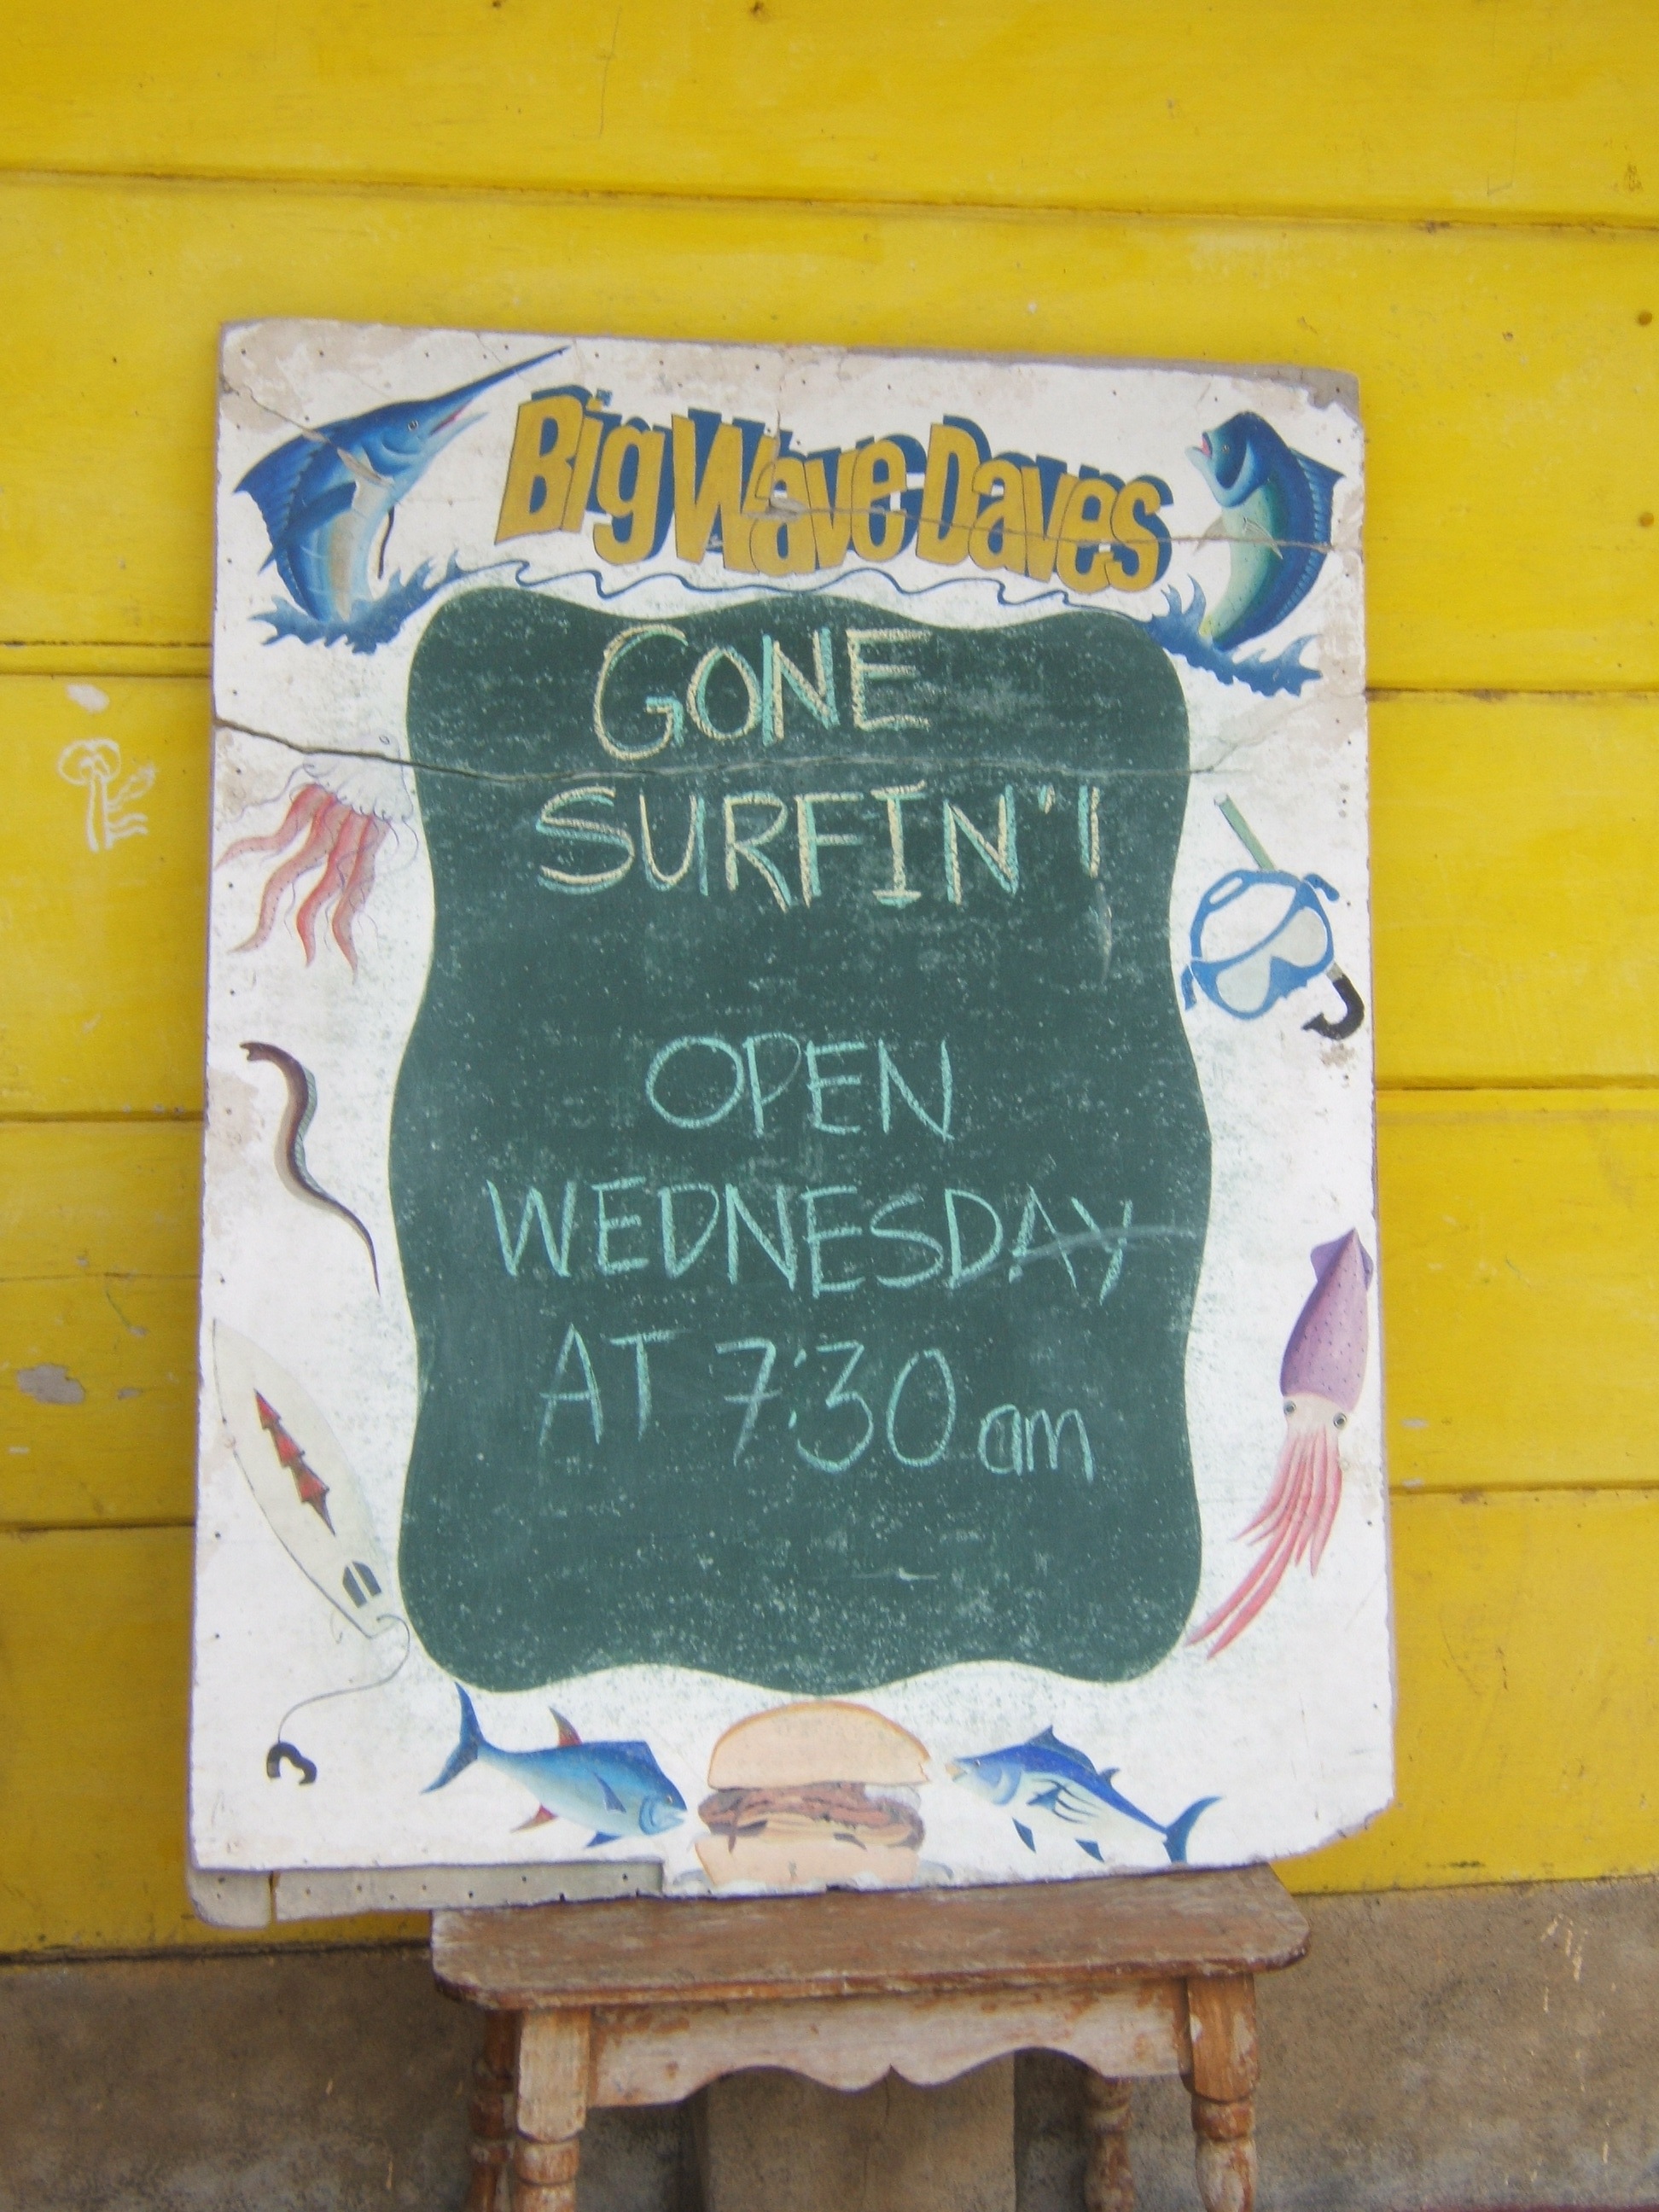 Big Wave Daves
GONE
SURFIN'!
OPEN
WEDNESDAY
AT 7:30 am